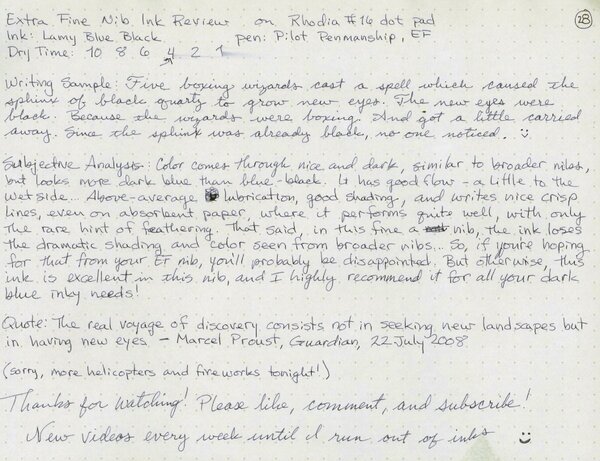 Extra Fine Nib Ink Review on Rhodia #16 dot pad
28
Ink: Lamy Blue Black pen: Pilot Penmanship, EF
Dry Time: 10 8 6 4 2 1
Writing Sample: Five boxing wizards cast a spell which caused the
sphinx of black quartz to grow new eyes. The new eyes were
black. Because the wizards were boxing. And got a little carried
away. Since the sphinx was already black, no one noticed. :)
Subjective Analysis: Color comes through nice and dark, similar to broader nibs,
but looks more dark blue than blue-black. It has good flow - a little to the
wet side... Above-average lubrication, good shading, and writes nice crisp
lines, even on absorbent paper, where it performs quite well, with only
the rare hint of feathering. That said, in this fine a nib, the ink loses
the dramatic shading and color seen from broader nibs... So, if you're hoping
for that from your EF nib, you'll probably be disappointed. But otherwise, this
ink is excellent in this nib, and I highly recommend it for all your dark
blue inky needs!
Quote: The real voyage of discovery consists not in seeking new landscapes but
in having new eyes - Marcel Proust, Guardian, 22 July 2008
(sorry, more helicopters and fireworks tonight!)
Thanks for watching! Please like, comment, and subscribe!
New videos every week until I run out of inks :)